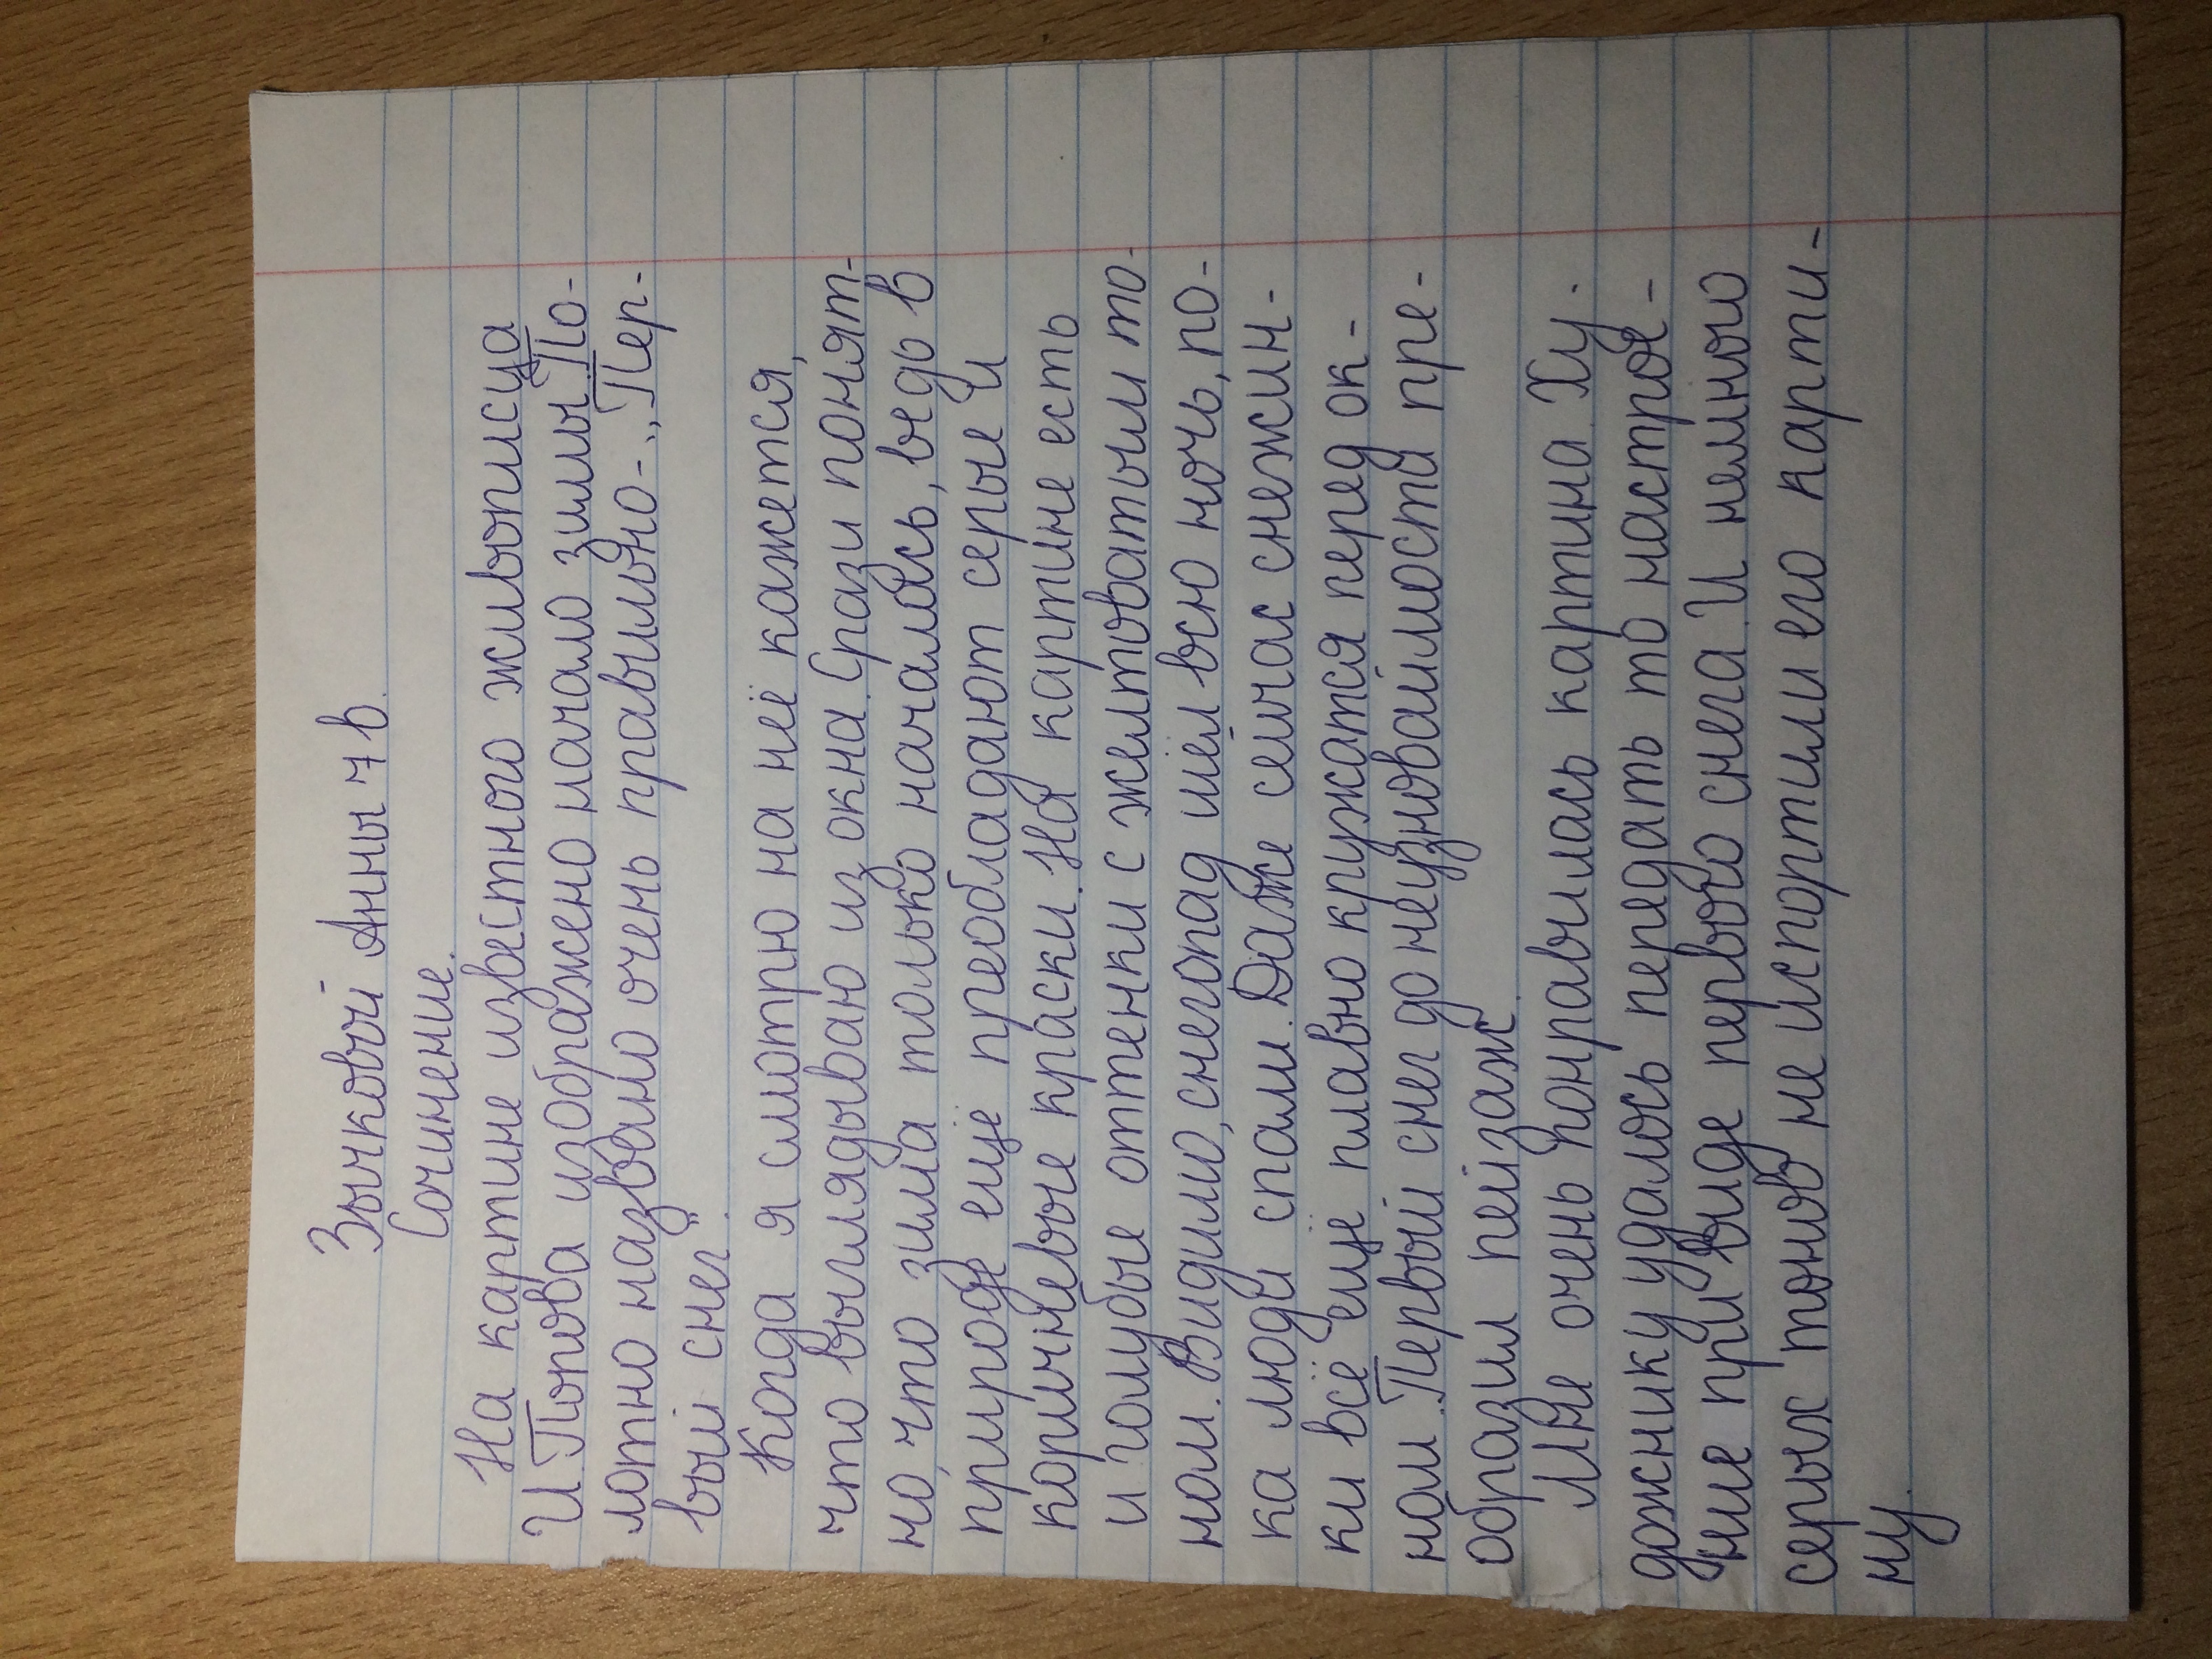 Зычковой Анны 7 в.
Сочинение.
На картине известного живописца
И Попова изображено начало зимы. По-
лотно названо очень правильно - „Пер-
вый снег".
Когда я смотрю на неё кажется,
что выглядываю из окна. Сразу понят-
но, что зима только началась, ведь в
природе еще преобладают серые и
коричневые краски. На картине есть
и голубые оттенки с желтоватым то-
ном. Видимо, снегопад шёл всю ночь, по-
ка люди спали. Даже сейчас снежин-
ки всё ещё плавно кружатся перед ок-
ном. Первый снег до неузноваймости пре-
образил пейзаж.
Мне очень понравилась картина. Ху-
дожнику удалось передать то настрое-
ние при виде первого снега. И немного
серых тонов не испортили его карти-
ну.